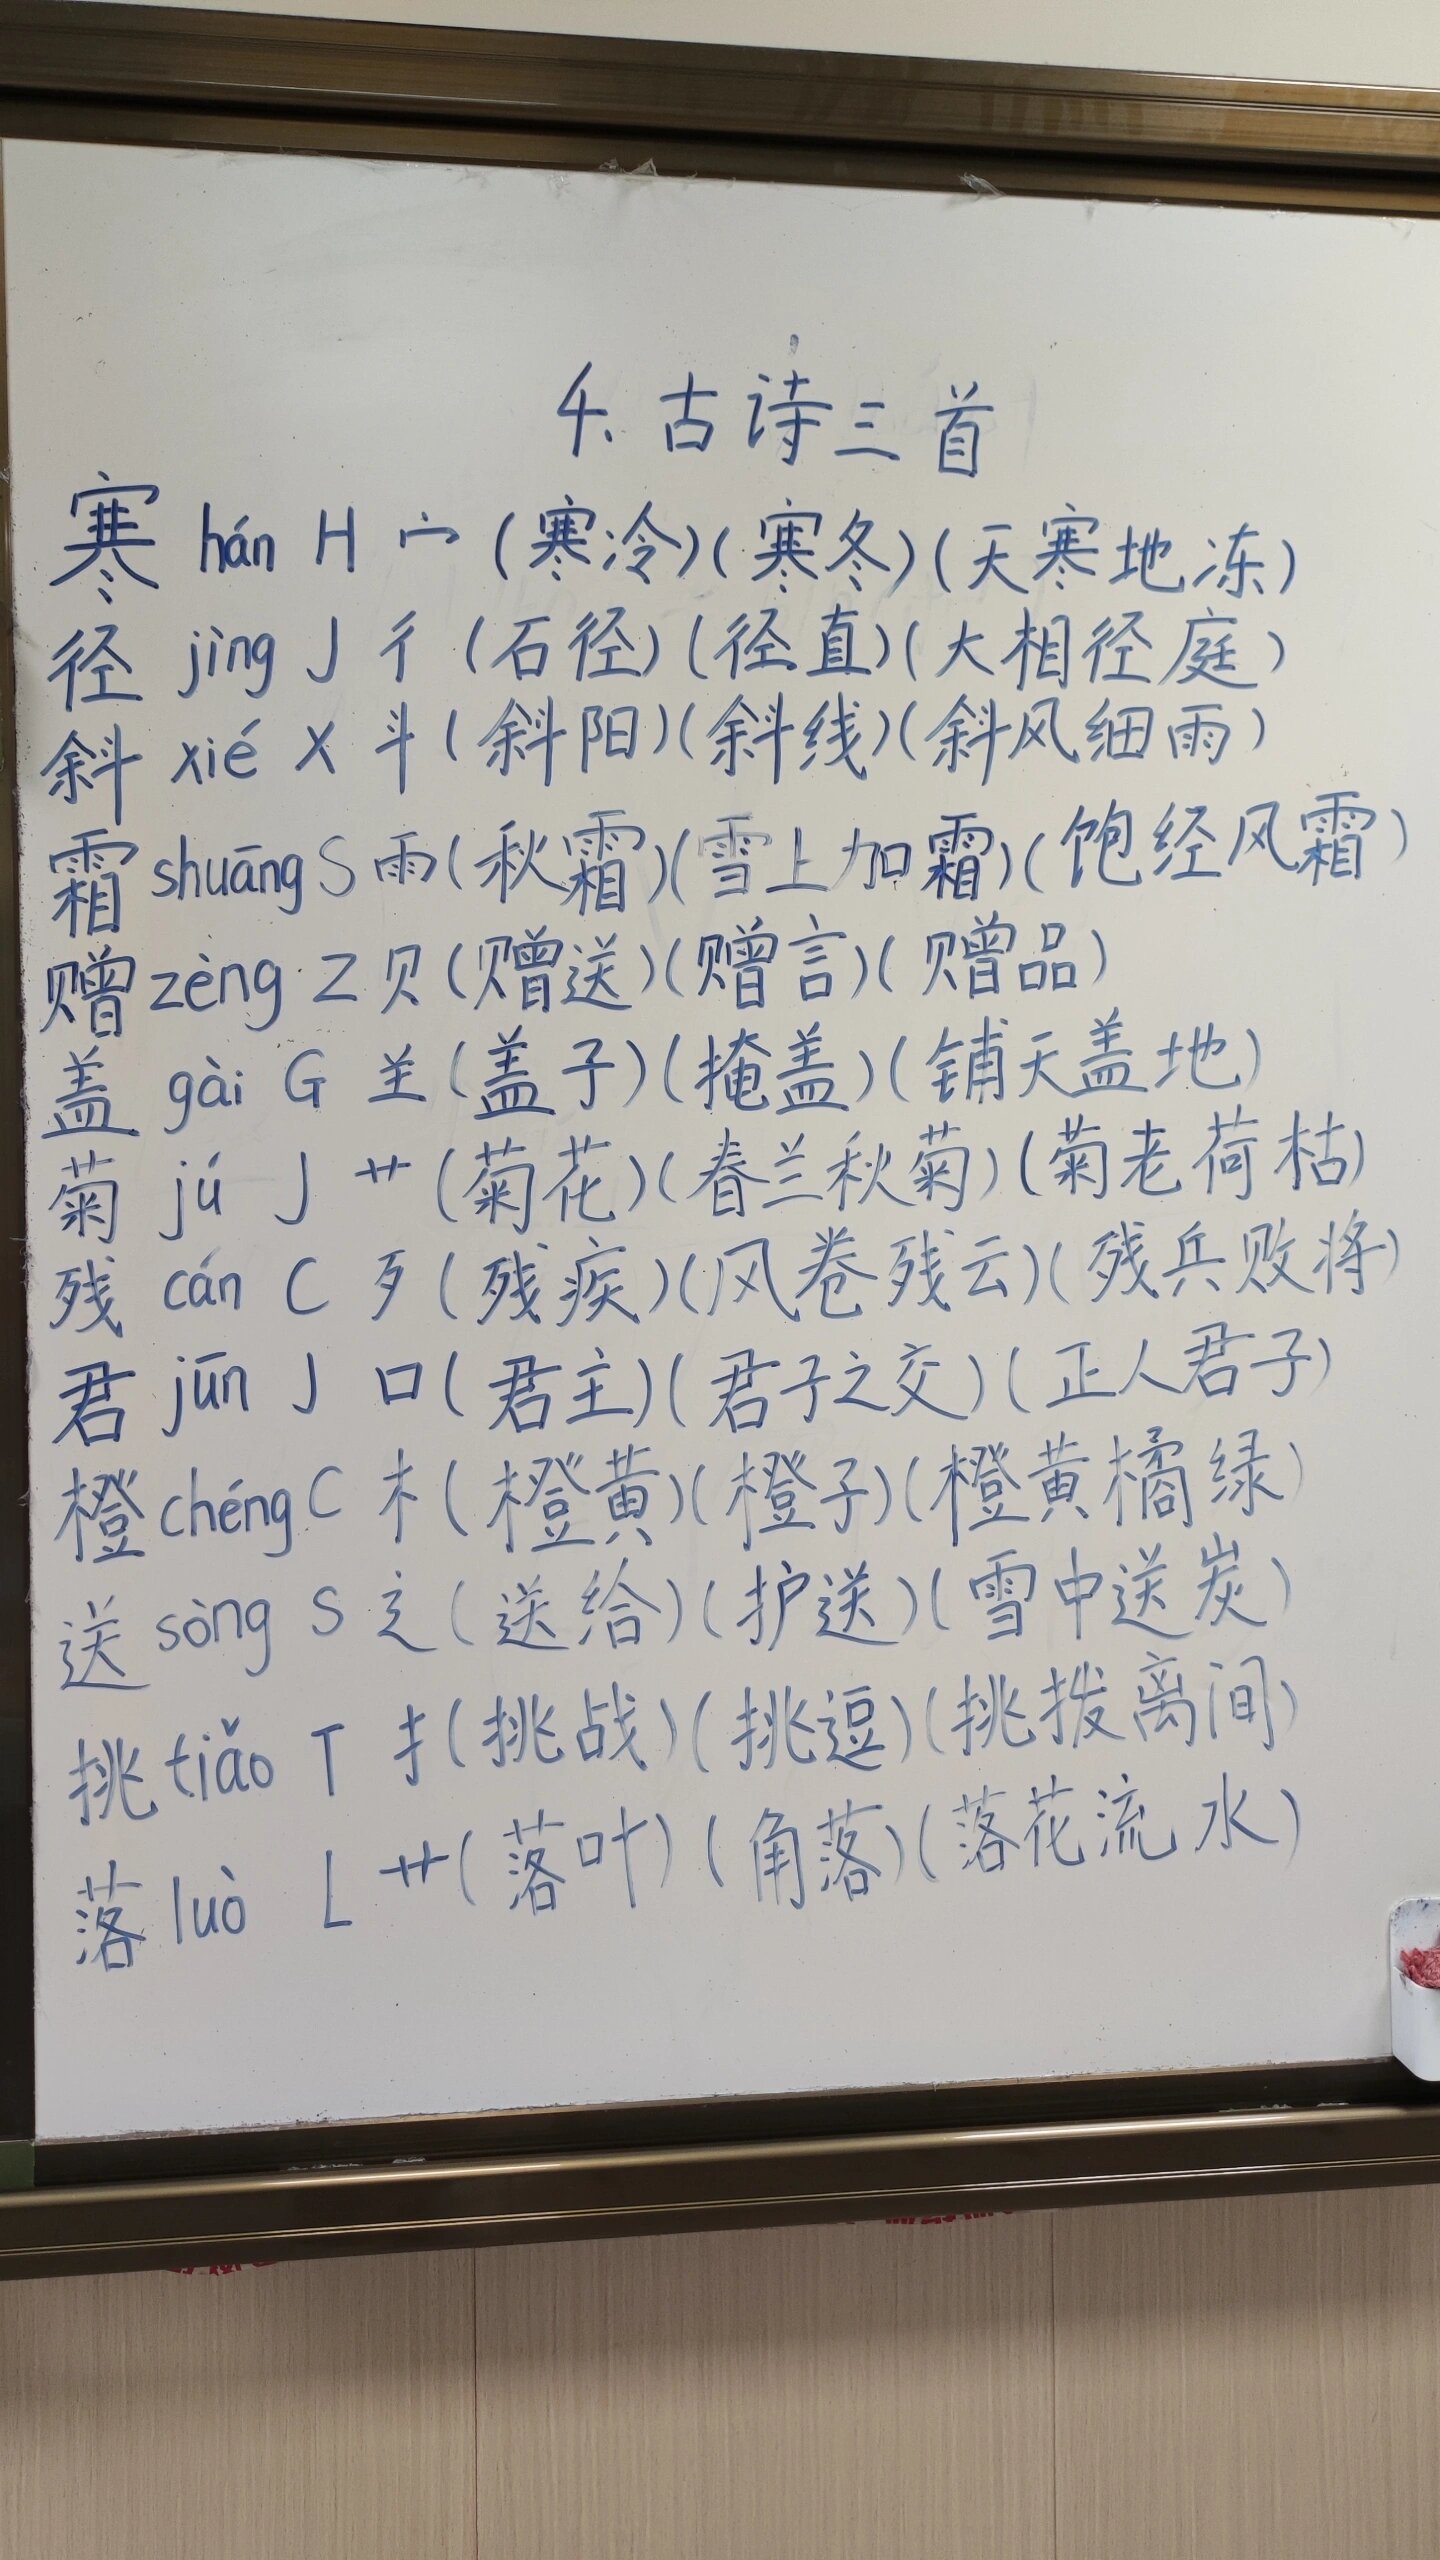 4. 古诗三首
寒 hán H 宀 (寒冷)(寒冬)(天寒地冻)
径 jìng J 彳 (石径)(径直)(大相径庭)
斜 xié X 斗 (斜阳)(斜线)(斜风细雨)
霜 shuāng S 雨 (秋霜)(雪上加霜)(饱经风霜)
赠 zèng Z 贝 (赠送)(赠言)(赠品)
盖 gài G 𦍌 (盖子)(掩盖)(铺天盖地)
菊 jú J 艹 (菊花)(春兰秋菊)(菊老荷枯)
残 cán C 歹 (残疾)(风卷残云)(残兵败将)
君 jūn J 口 (君主)(君子之交)(正人君子)
橙 chéng C 木 (橙黄)(橙子)(橙黄橘绿)
送 sòng S 辶 (送给)(护送)(雪中送炭)
挑 tiǎo T 扌 (挑战)(挑逗)(挑拨离间)
落 luò L 艹 (落叶)(角落)(落花流水)